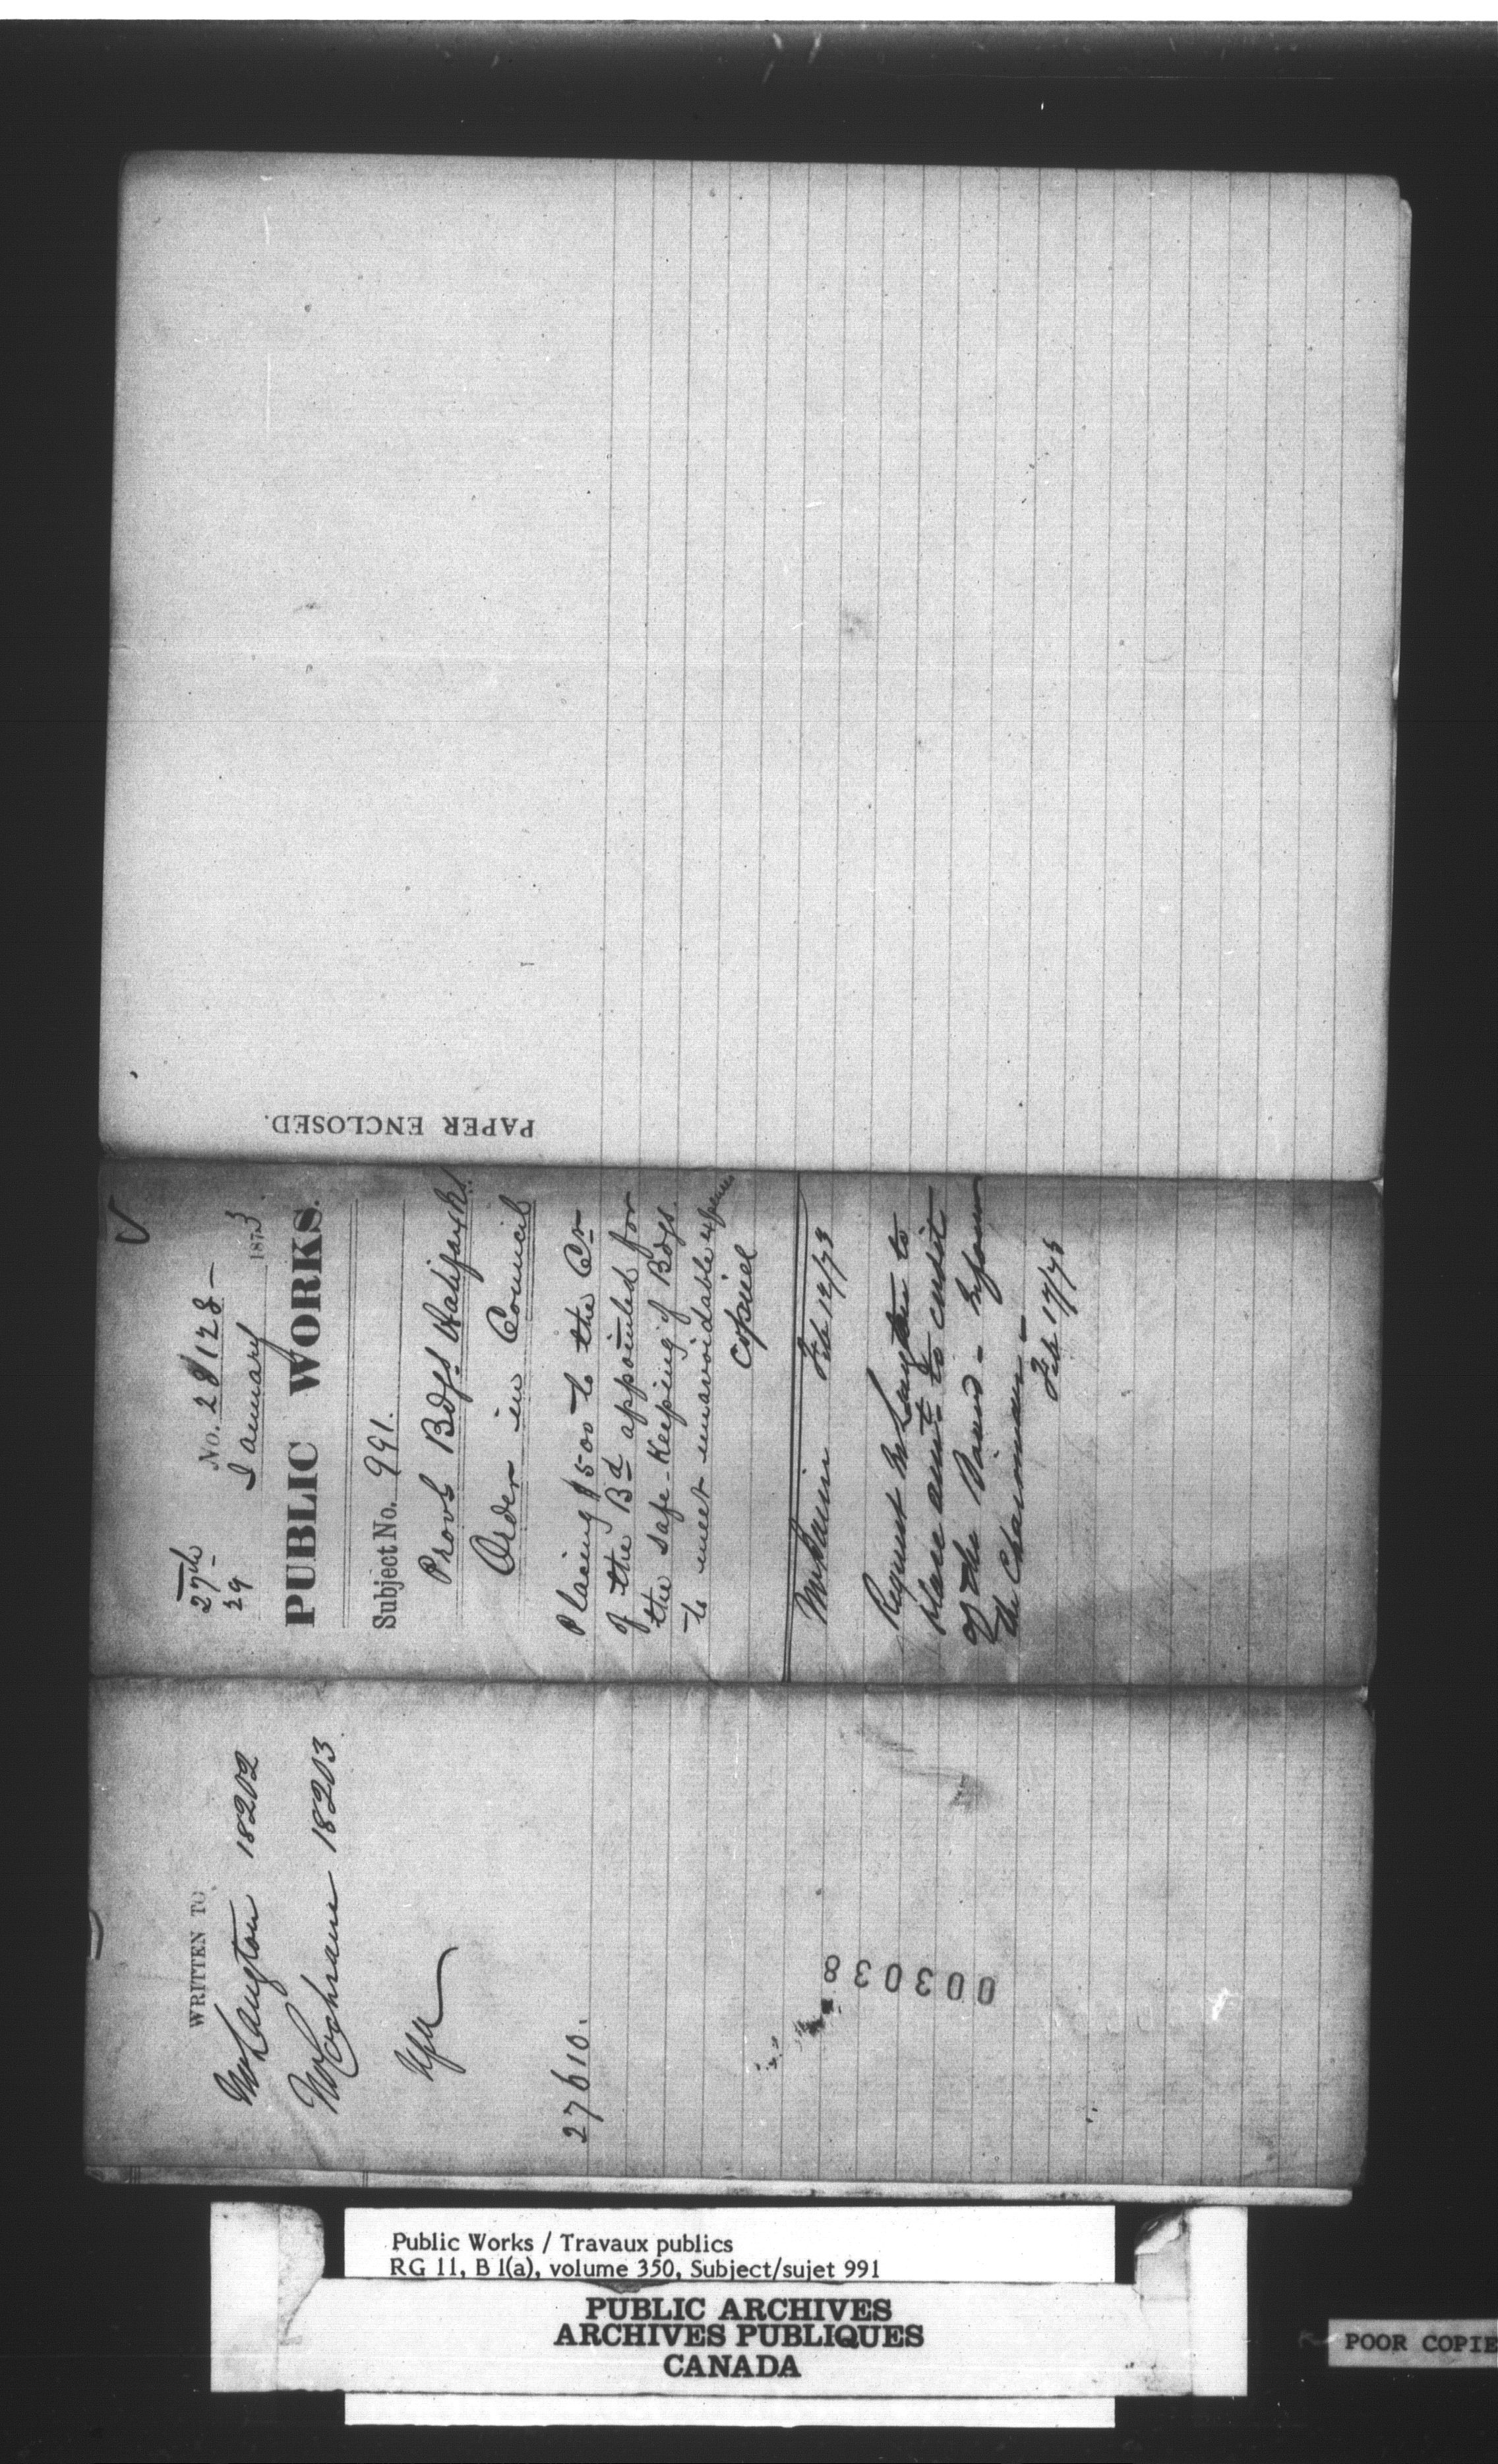 PAPER ENCLOSED.
27th
29
No. 28128 -
January 1873
PUBLIC WORKS.
Subject No. 991.
Provl Bdgs Halifax NS.
Order in Council
Placing $500 to the Cr
of the Bd appointed for
the safe-keeping of Bdgs.
to meet unavoidable expenses
copied
Feb 12/73
Request Mr Langton to
place amt to credit
of the Board - Inform
the Chairman -
Feb 17/73
WRITTEN TO
Mr Langton 18202
Mr Cochrane 18203.
27610.
003038
Public Works / Travaux publics
RG 11, B 1(a), volume 350, Subject/sujet 991
PUBLIC ARCHIVES
ARCHIVES PUBLIQUES
CANADA
POOR COPIE